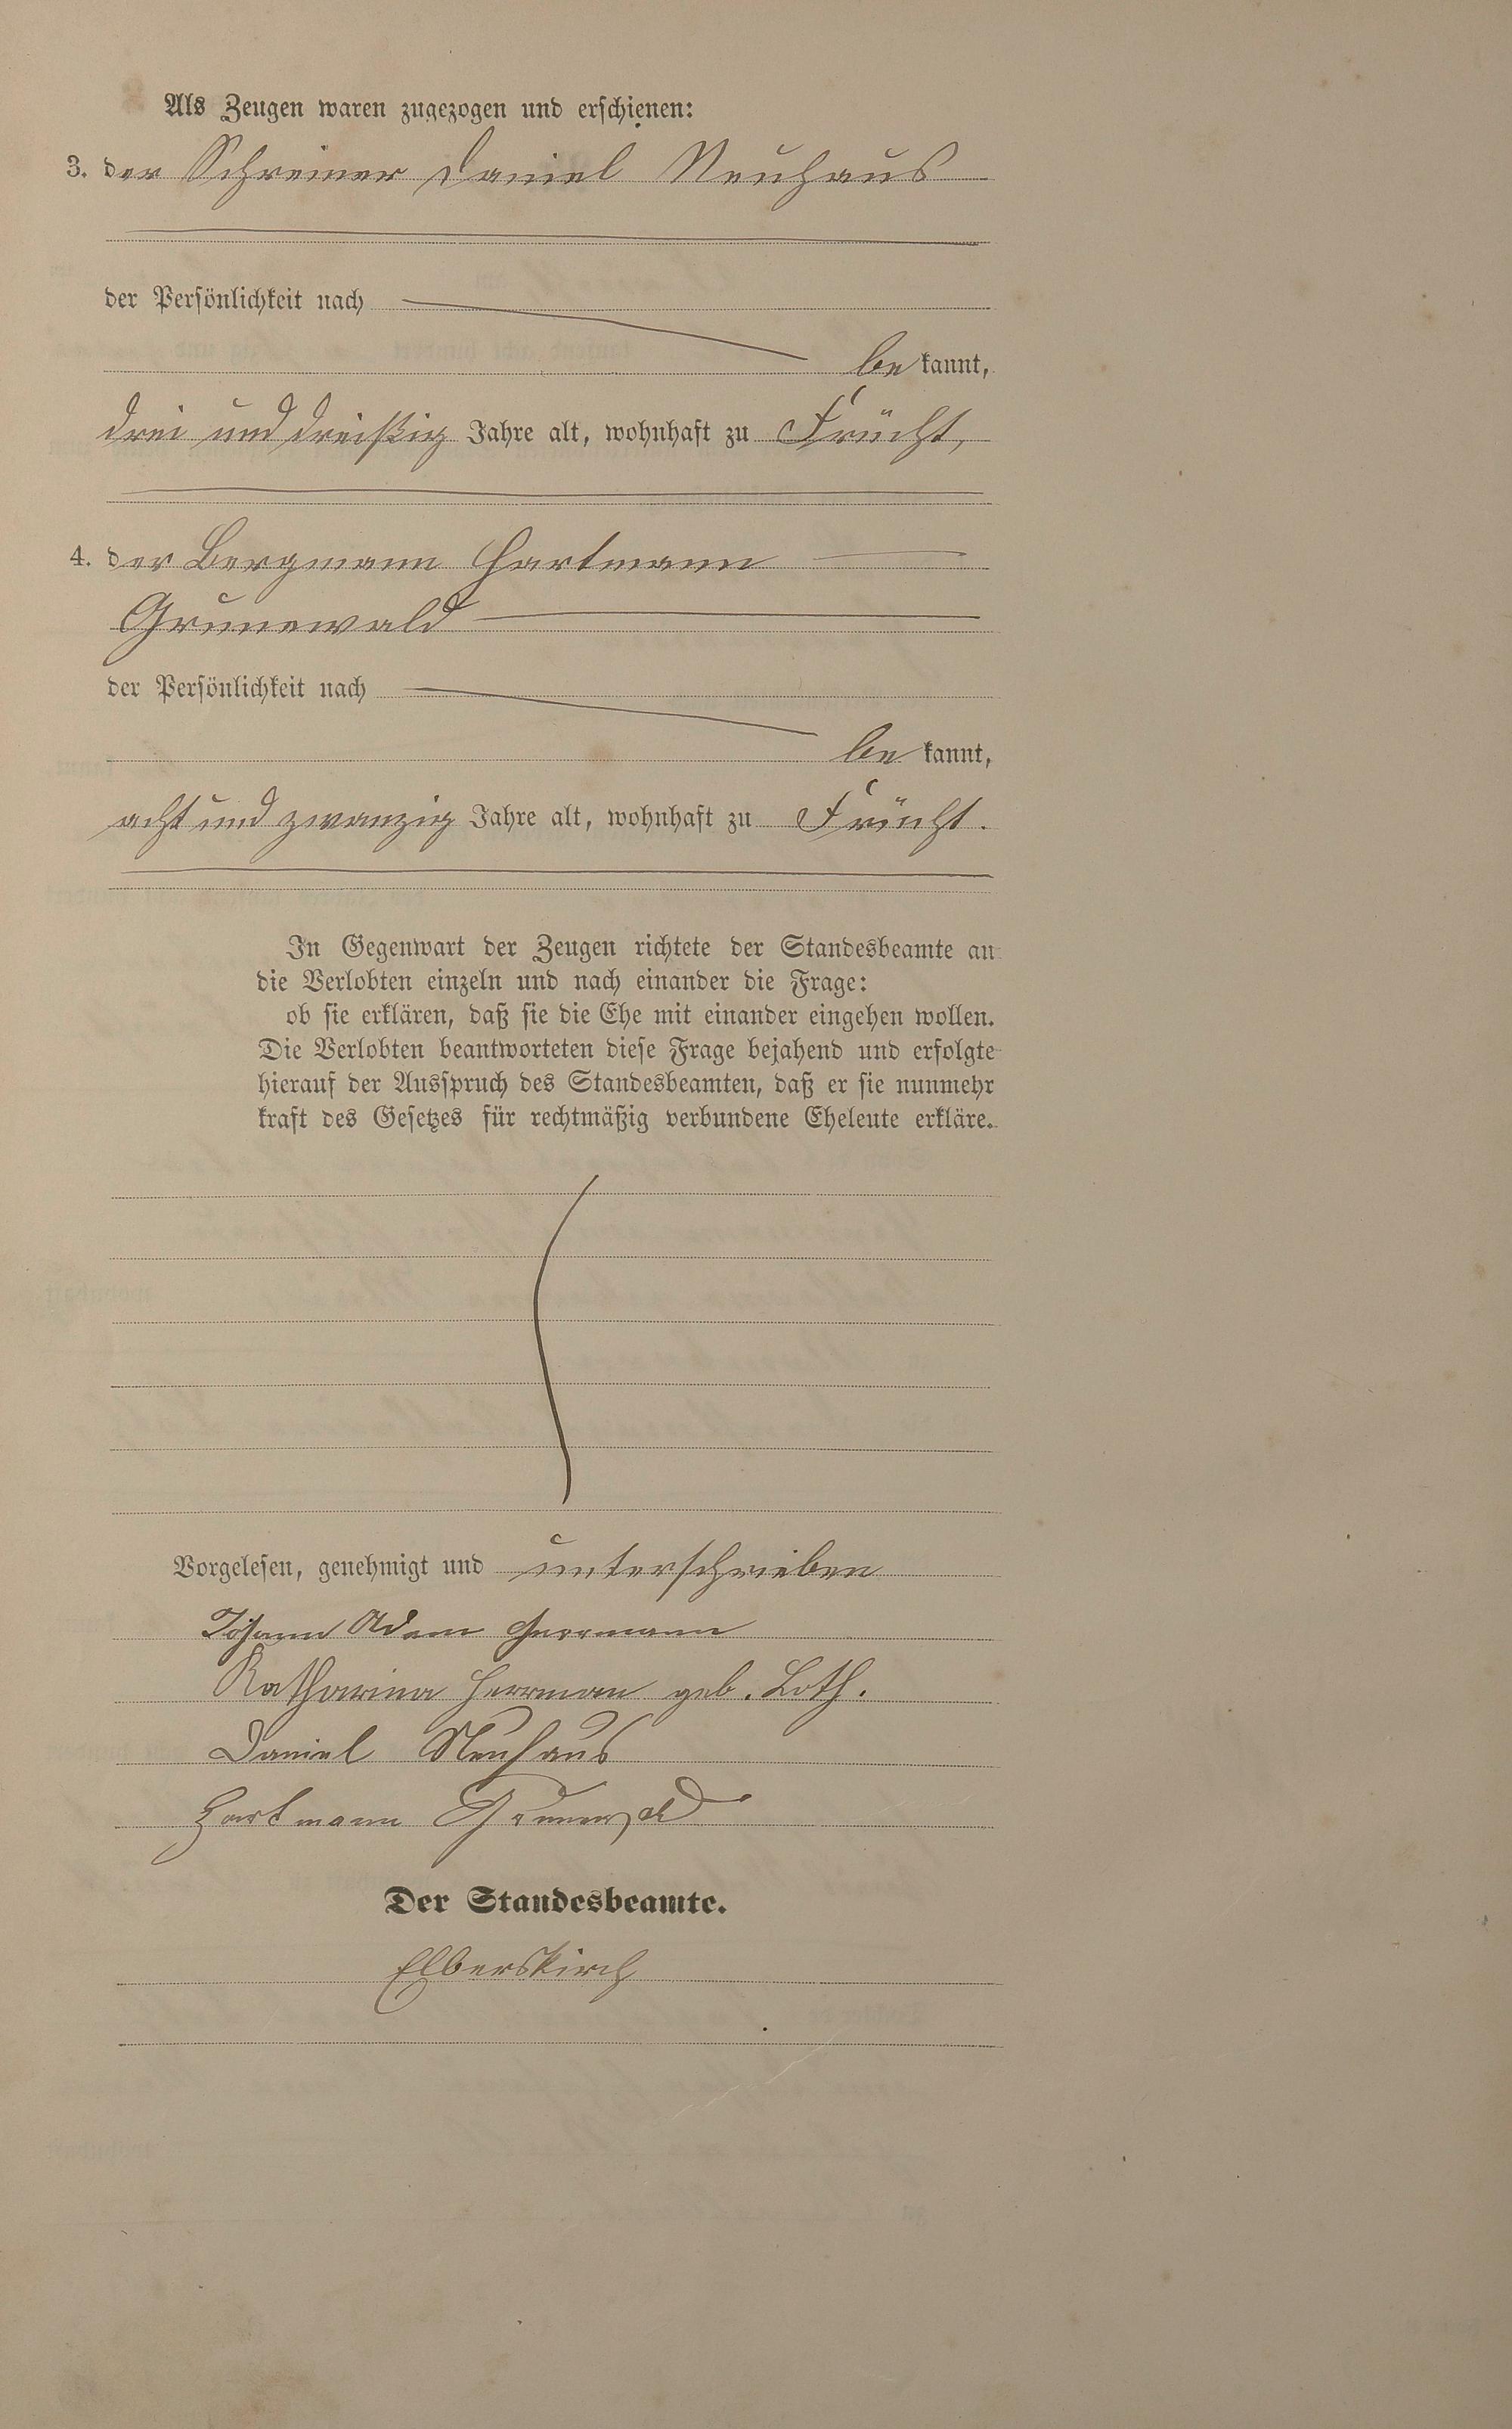 Als Zeugen waren zugezogen und erschienen:
3. der Schreiner Daniel Neuhaus
der Persönlichkeit nach
be kannt,
drei und dreißig Jahre alt, wohnhaft zu Frücht,
4. der Bergmann Hartmann
Grunewald
der Persönlichkeit nach
be kannt,
acht und zwanzig Jahre alt, wohnhaft zu Frücht.
In Gegenwart der Zeugen richtete der Standesbeamte an
die Verlobten einzeln und nach einander die Frage:
ob sie erklären, daß sie die Ehe mit einander eingehen wollen.
Die Verlobten beantworteten diese Frage bejahend und erfolgte
hierauf der Ausspruch des Standesbeamten, daß er sie nunmehr
kraft des Gesetzes für rechtmäßig verbundene Eheleute erkläre.
Vorgelesen, genehmigt und unterschrieben
Johann Adam Herrmann
Katharina Herrman geb. Loth.
Daniel Neuhaus
Hartmann Grunewald
Der Standesbeamte.
Elberskirch